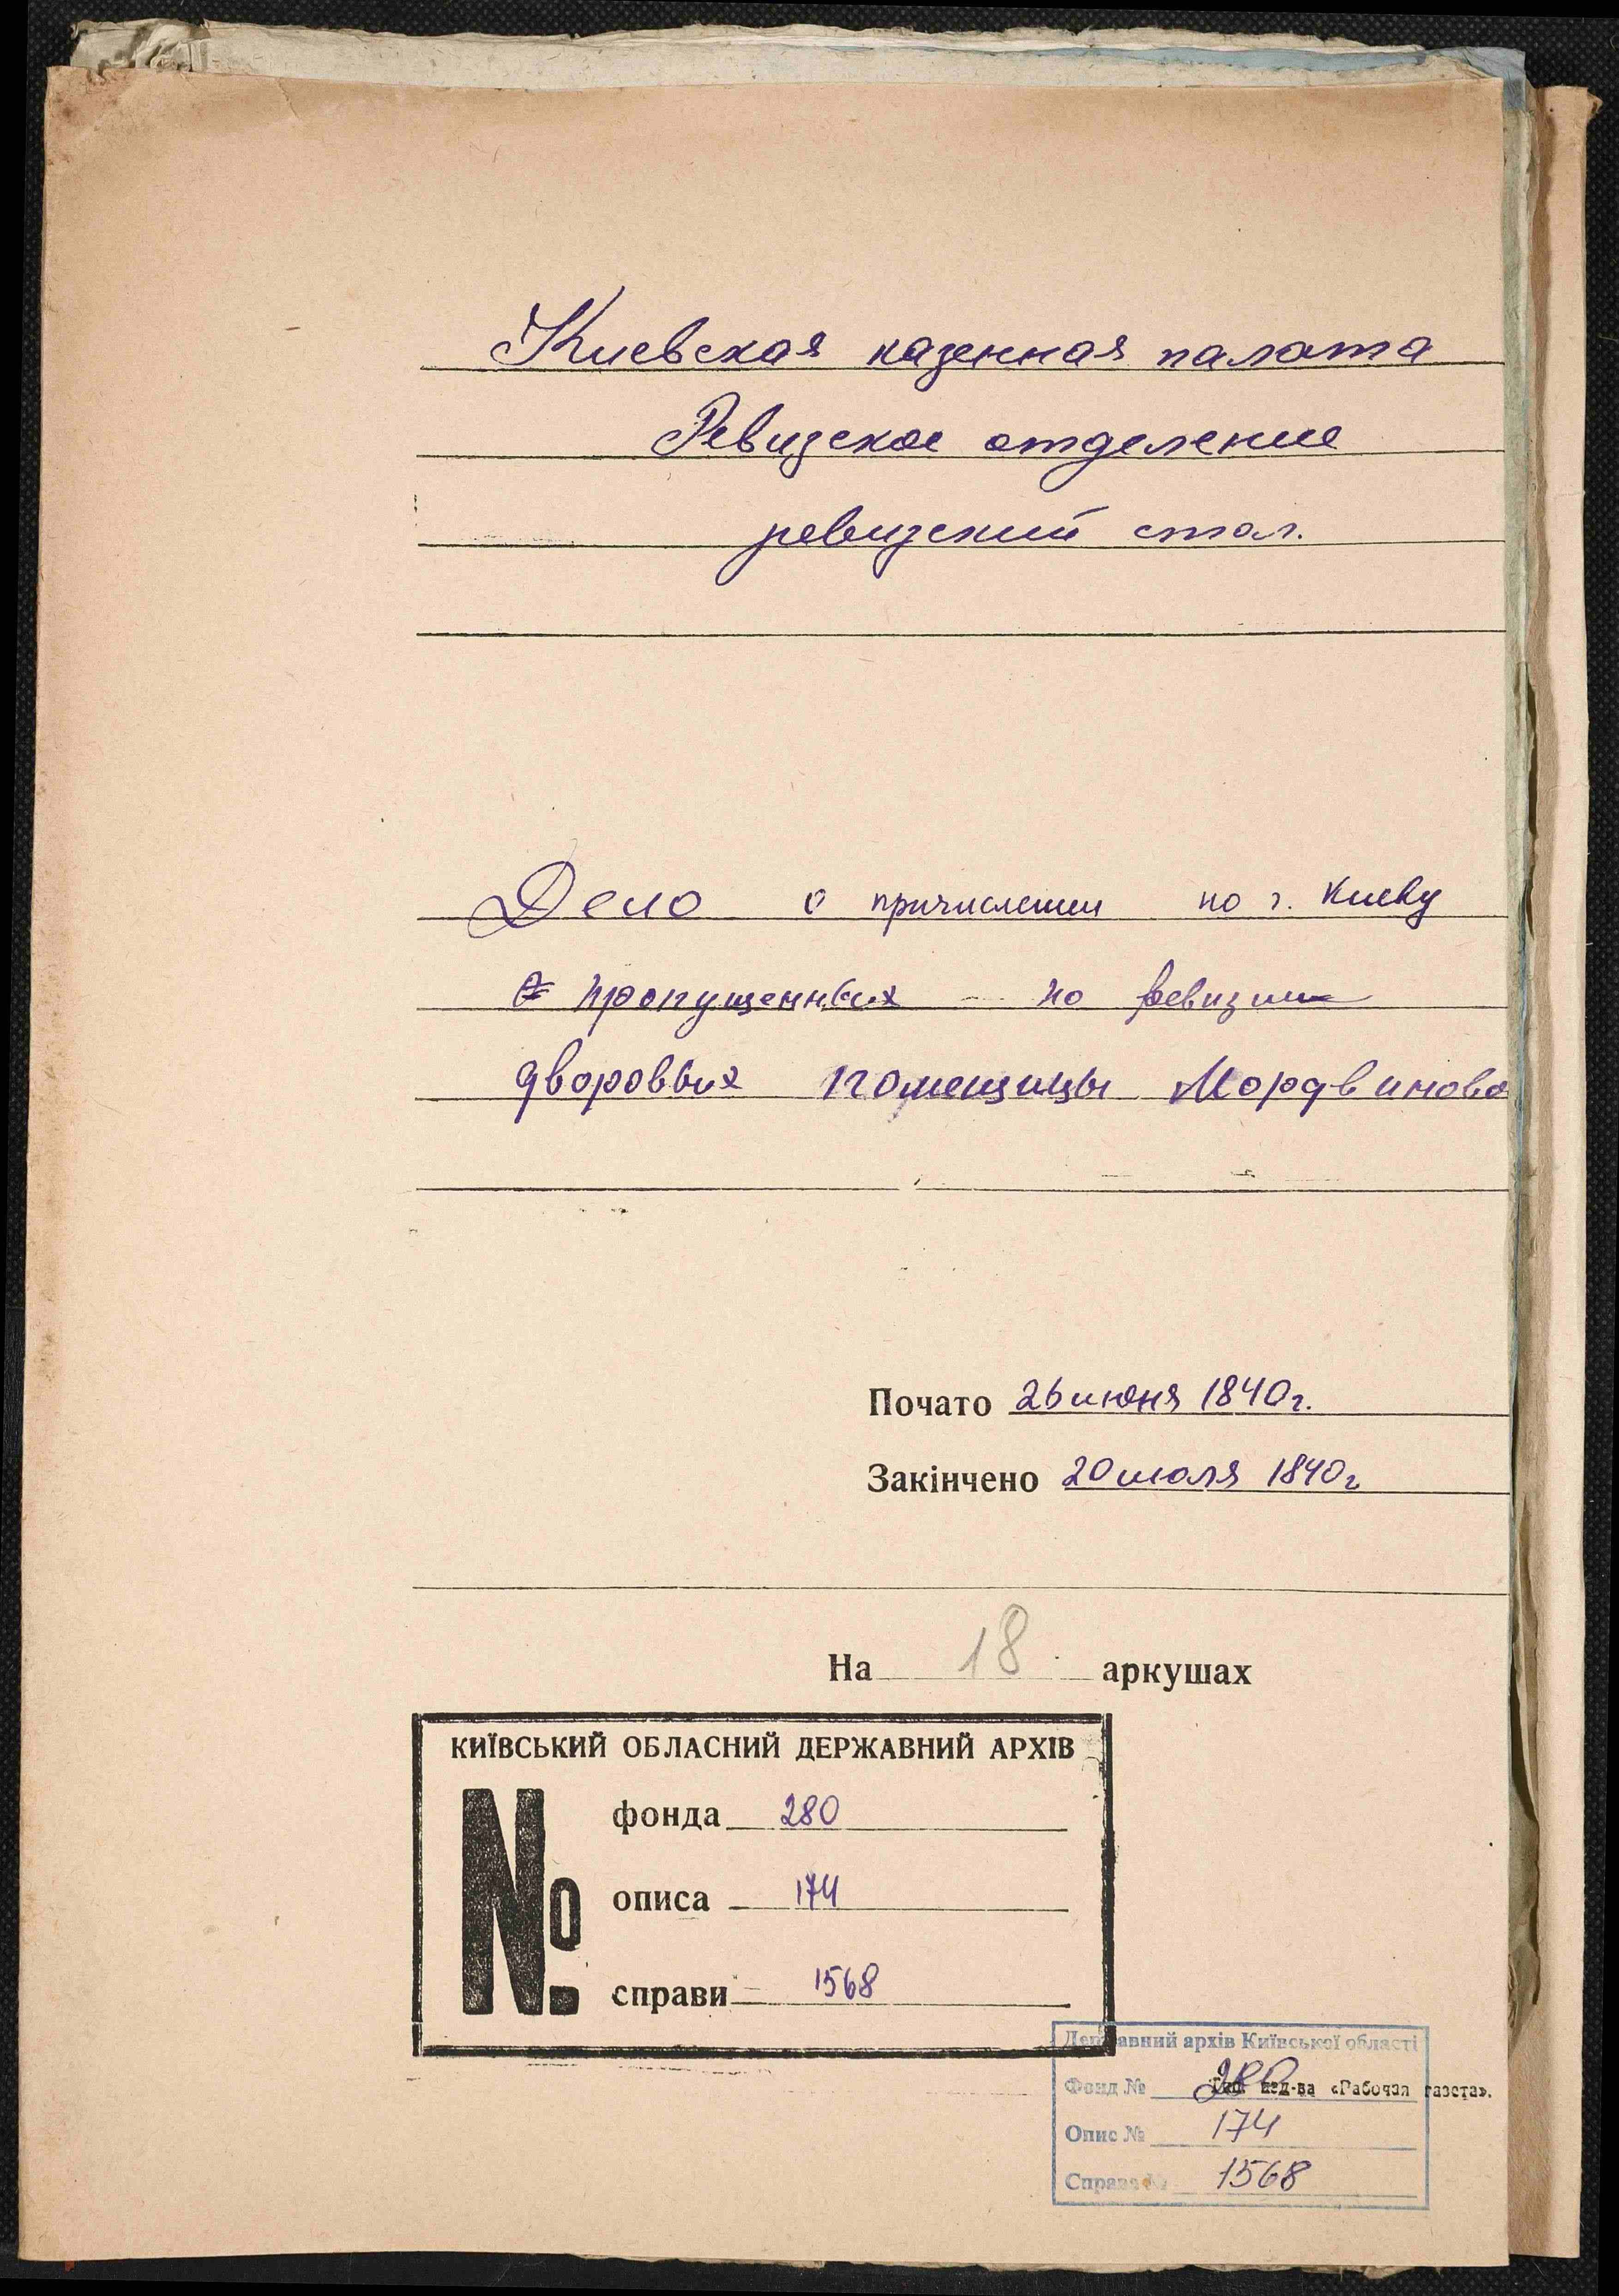 Киевская казенная палата
Ревизское отделение
ревизский стол.
Дело о причислении по г. Киеву
пропущенных по ревизии
дворовых помещицы Мордвиново
Почато 26 июня 1840г.
Закінчено 20 июля 1840г
На 18 аркушах
КИЇВСЬКИЙ ОБЛАСНИЙ ДЕРЖАВНИЙ АРХІВ
№
фонда 280
описа 174
справи 1568
Державний архів Київської області
Фонд № 280
изд-ва «Рабочая газета».
Опис № 174
Справа № 1568